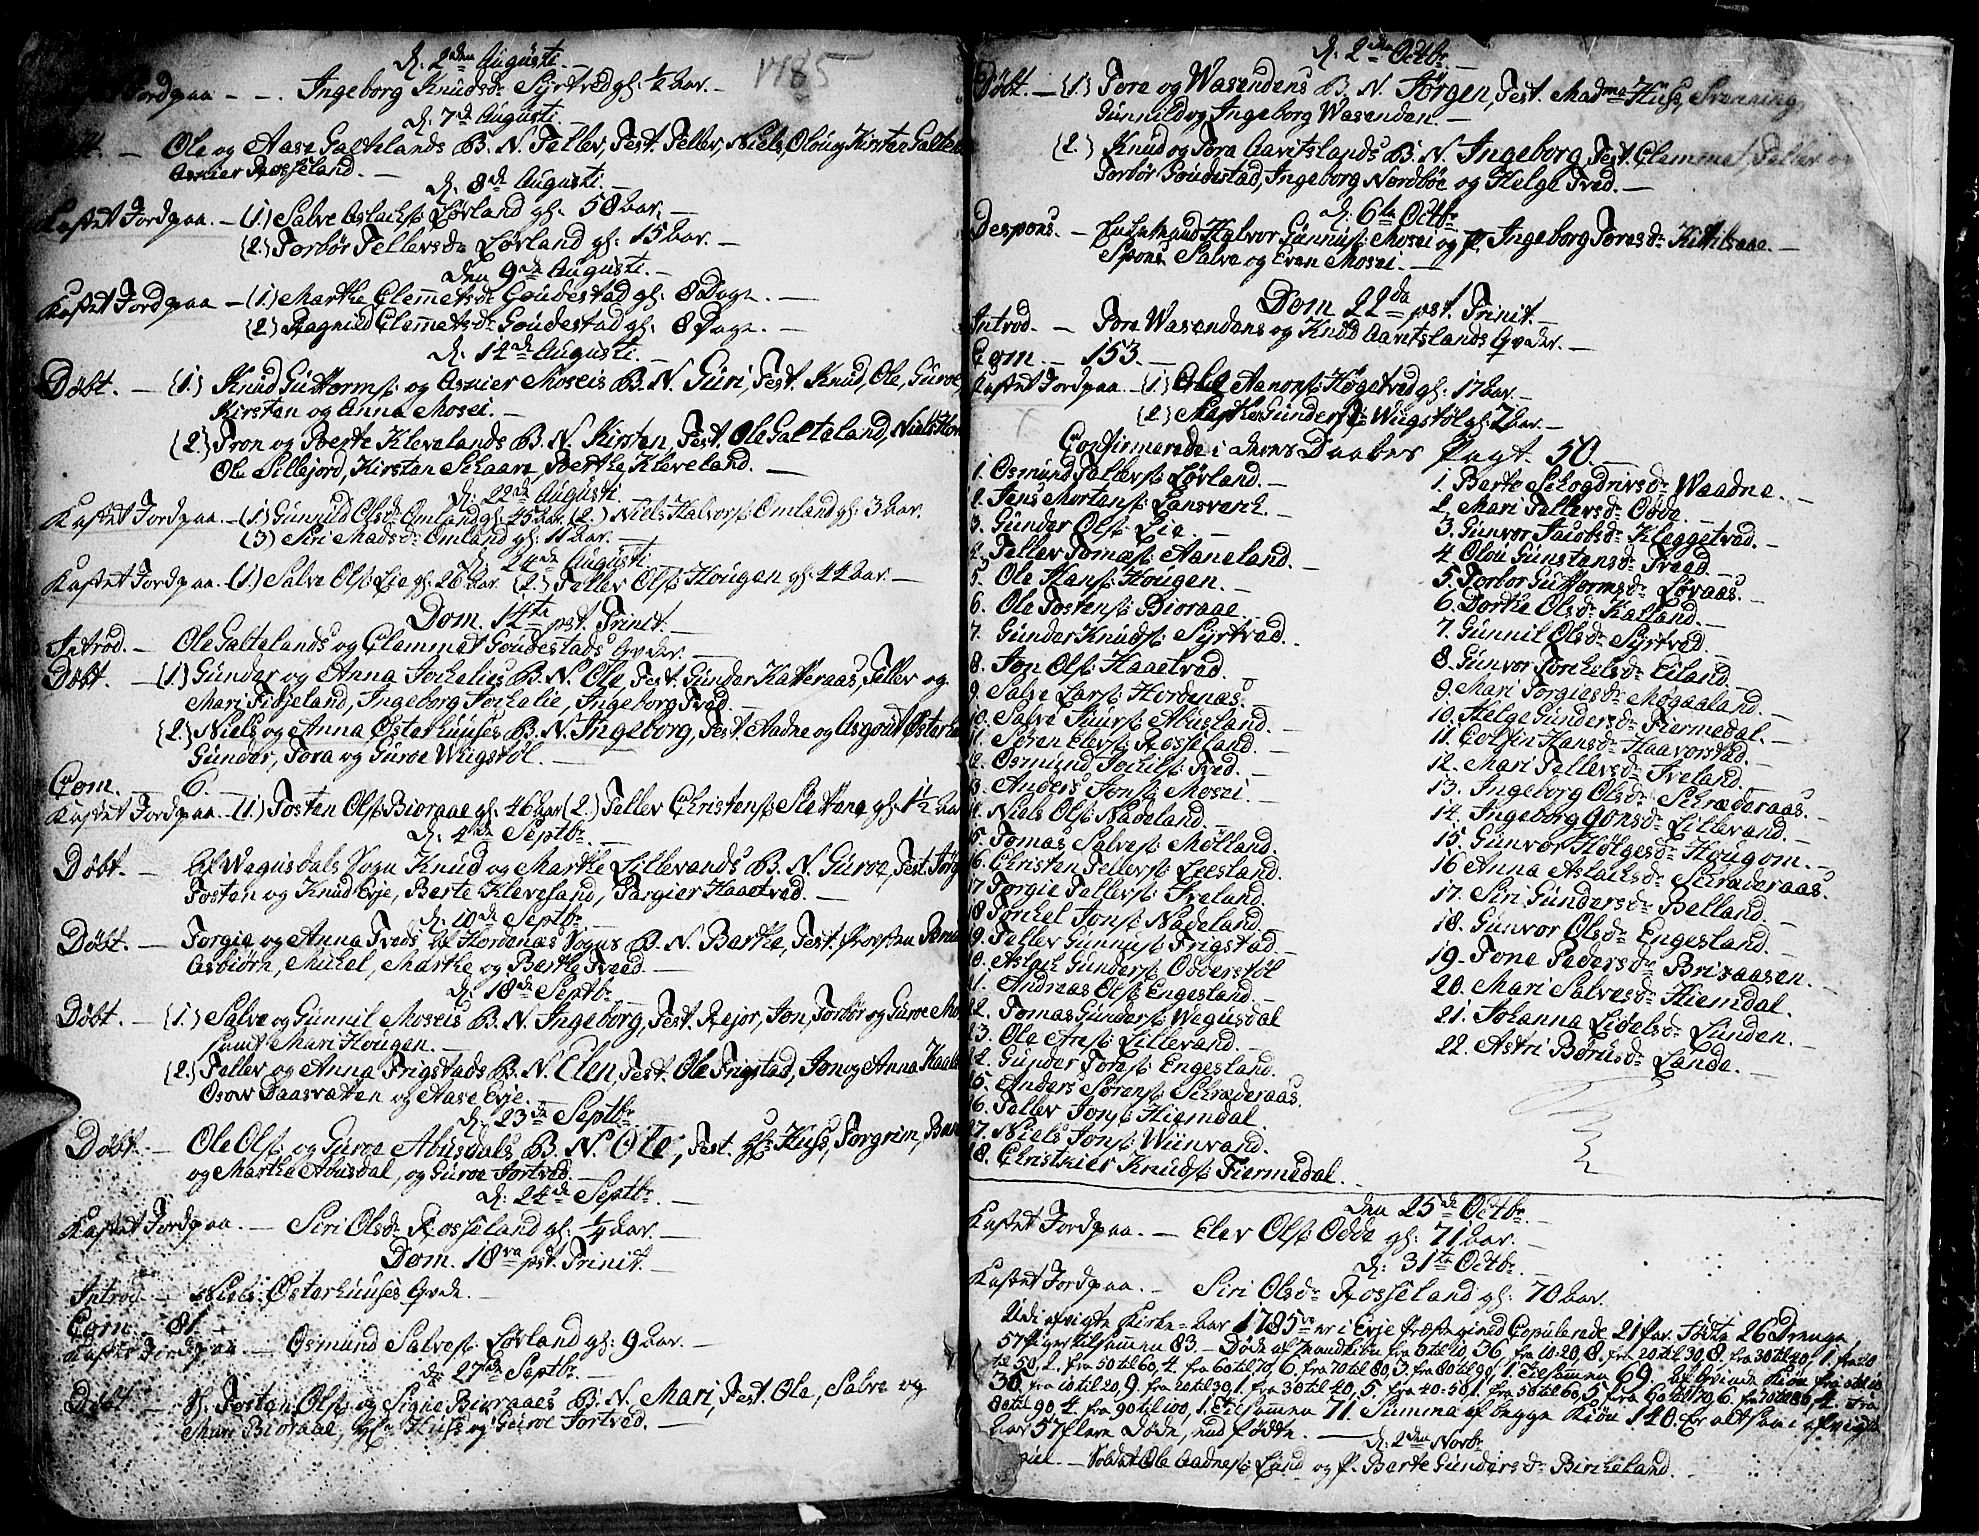 1785
d: 2den Augusti.
Jordpaa - - . Ingeborg Knudsdr Syrtved gl: ½ Aar.
d: 7de Augusti.
Ole og Aase Galtelands B. N. Tellev, Test. Tellev, Niels, Olou og Kirsten
Asnier Rosseland.
d: 8de Augusti.
Kastet Jordpaa. - (1) Salve Aslachs: Løvland gl: 58 Aar.
(2.) Torbor Tellevsdr Løvland gl: 15 Aar.
den 9de Augusti.
Kastet Jordpaa - (1) Marthe Clemetsdr Goudestad gl: 8 Dage.
(2.) Ragnild Clemetsdr Goudestad gl: 8 Dage.
d: 14de Augusti.
Døbt. - (1.) Knud Guttorms: og Asnier Moseis B. N. Guri, Test. Knud, Ole, Guroe,
Kirsten og Anna Mosei.
(2.) Tron og Berte Klevelands B. N. Kirsten, Test. Ole Galteland, Niels
Ole Lillejord, Kirsten Schaare, Berthe Kleveland.
d: 22de Augusti.
Kastet Jordpaa. - (1) Gunnild Olsdr Omland gl: 45 Aar. (2.) Niels Halvors: Omland gl: 3 Aar.
(3) Siri Madsdr Omland gl: 11 Aar.
d: 24de Augusti
Kastet Jordpaa. (1.) Salve Ols: Lie gl: 26 Aar. (2.) Tellev Ols: Hougen gl: 44 Aar.
Dom. 14te pst. Trinit.
Introd. - Ole Galtelands og Clemmet Goudestads Qvder.
Døbt. - (1.) Gunder og Anna Jochelies B. N. Ole, Test. Gunder Katteraas, Tellev og
Mari Fidjeland, Ingeborg Jochelie, Ingeborg Tved.
(2.) Niels og Anna Østerhuuses B. N. Ingeborg, Test. Aadne og Asgout
Gunder, Tora og Guroe Wiigstøl.
Com. - 6. -
Kastet Jordpaa. - (1.) Tosten Ols: Bioraae gl: 46 Aar (2.) Tellev Christens: Slettene gl: 1½ Aar
d: 4de Septbr.
Døbt. - Af Wegusdals Sogn Knud og Marthe Lillevands B. N. Guroe, Test.
Tosten og Knud Evje, Berte Kleveland, Targier Haaetved.
d: 10de Septbr.
Døbt. - Torgie og Anna Tveds af Hordenæs Sogns B. N. Berthe, Test.
Asbiørn, Michel, Marthe og Berthe Tveed.
d: 18de Septbr.
Døbt. - (1.) Salve og Gunnil Moseis B. N. Ingeborg, Test. Rejor, Jon, Torbor og Guroe
samt Mari Hougen.
(2.) Tellev og Anna Frigstads B. N. Elen, Test. Ole Frigstad, Jon og Anna
Osow Daasvatten og Aase Evje.
d: 23de Septbr.
Døbt. - Ole Ols: og Guroe Abusdals B. N. Ole, Test. Hr: Huss, Torgrim,
og Marthe Abusdal, og Guroe Tortved.
d: 24de Septbr.
Kastet Jordpaa. - Siri Olsdr Rosseland gl: ¼ Aar.
Dom. 18va pst. Trinit.
Introd. - Niels Østerhuuses Qvde.
Com. - 81. -
Kastet Jordpaa - Osmund Salves: Løvland gl: 9 Aar.
d: 27de Septbr.
Døbt - Tosten Ols: og Signe Bioraaes B. N. Mari, Test. Ole, Salve og
Mari Bioraae, Hr: Huss og Guroe Tortved.
d: 2den Octbr.
Døbt. - (1.) Tore og Wasendens B. N. Jørgen, Test. Madme Huss,
Gunnild og Ingeborg Wasenden.
(2.) Knud og Tora Aavitslands B. N. Ingeborg, Test. Clemmet, Tellev og
Torbor Goudestad, Ingeborg Nordbøe og Helge Tved.
d: 6te Octbr.
Despons. - Halvor Gunnufs: Mosei og P. Ingeborg Toresdr Kittilsaae.
Spons. Salve og Even Mosei.
Dom 22da pst. Trinit.
Introd. - Tore Wasendens og Knud Aavitslands Qvder.
Com. - 153. -
Kastet Jordpaa. - (1) Ole Aanons: Høgetved gl: 17 Aar.
(2.) Gundersdr Wiigstøl gl: 2 Aar.
Confirmerede i deres Daabes Pagt. 50.
1. Osmund Tellevs: Løvland.
2. Jens Mortens: Lansverch.
3. Gunder Ols: Lie.
4. Tellev Tomæs: Aaneland.
5. Ole Hans: Hougen.
6. Ole Tostens: Bioraae.
7. Gunder Knuds: Syrtved.
8. Jon Ols: Haaetved.
9. Salve Lars: Hordenæs.
10. Salve Siurs: Abusland.
11. Søren Elevs: Rosseland.
12. Osmund Jochils: Tved.
13. Anders Jons: Mosei.
14. Niels Ols: Nadeland.
15. Tomas Salves: Mølland.
16. Christen Tellevs: Leesland.
17. Torgie Tellevs: Iveland.
18. Torkel Jons: Nadeland.
19. Tellev Gunnufs: Frigstad.
20. Aslach Gunders: Odderstøl
21. Andreas Ols: Engesland.
22. Tomas Gunders: Wegusdal
23. Ole Ars: Lillevand.
24. Gunder Tores: Engesland.
25. Anders Sørens: Schræderaas.
26. Tellev Jons: Hiemdal.
27. Niels Jons: Wiinvand.
28. Christkier Knuds: Fiermedal.
1. Berte Schogdrivsdr Waadne.
2. Mari Tellevsdr Odde.
3. Gunvor Jacobsdr Kleggetved.
4 Olou Gunstensdr Tveed.
5. Torbor Guttormsdr Løvaas.
6. Dorthe Olsdr Katland.
7. Gunnil Olsdr Syrtved.
8. Gunvor Torchelsdr Eiland.
9. Mari Torgiesdr Møgaaland.
10. Helge Gundersdr Fiermedal.
11. Golfin Hansdr Haavorstad.
12. Mari Tellevsdr Iveland.
13. Ingeborg Olsdr Schræderaas.
14. Ingeborg Jonsdr Lillevand.
15. Gunvor Helgesdr Hougom.
16 Anna Aslachsdr Schræderaas.
17. Siri Gundersdr Belland.
18. Gunvor Olsdr Engesland.
19. Tone Pedersdr Brisaasen.
20. Mari Salvesdr Hiemdal.
21. Johanna Lidelsdr Lunden.
22. Astri Børusdr Lande.
den 25de Octbr.
Kastet Jordpaa. - Elev Ols: Odde gl: 71 Aar.
d: 31te Octbr.
Kastet Jordpaa. - Siri Olsdr Rosseland gl: 70 Aar.
Udi afvigte Kirke-Aar 1785ve er i Evje Præstegield Copulerede 21 Par. Fødte 26 Drenge,
57 Piger tilsammen 83. - Døde af Mandkiøn fra 0 til 10, 36. fra 10-20, 8. fra 20 til 30, 8. fra 30 til 40, 1. fra 40
til 50, 2. fra 50 til 60, 4. fra 60 til 70, 6. fra 70 til 80, 3. fra 80 til 90, 1. Tilsamen 69. af Qvinde Kiøn fra 0 til 10
36. fra 10 til 20, 9. fra 20 til 30, 1. fra 30 til 40, 5. fra 40-50, 1. fra 50 til 60, 5. fra 60 til 70, 6. fra 70 til 80, 4. fra
80 til 90, 4. fra 90 til 100, 1. Tilsammen 71. Summa af begge Kiøn 140. Er altsaa i afvigte
Aar 57 flere Døde, end fødte.
d: 2den Novbr.
Soldat Ole Aadnes: Lund og P. Berte Gundersdr Bircheland.